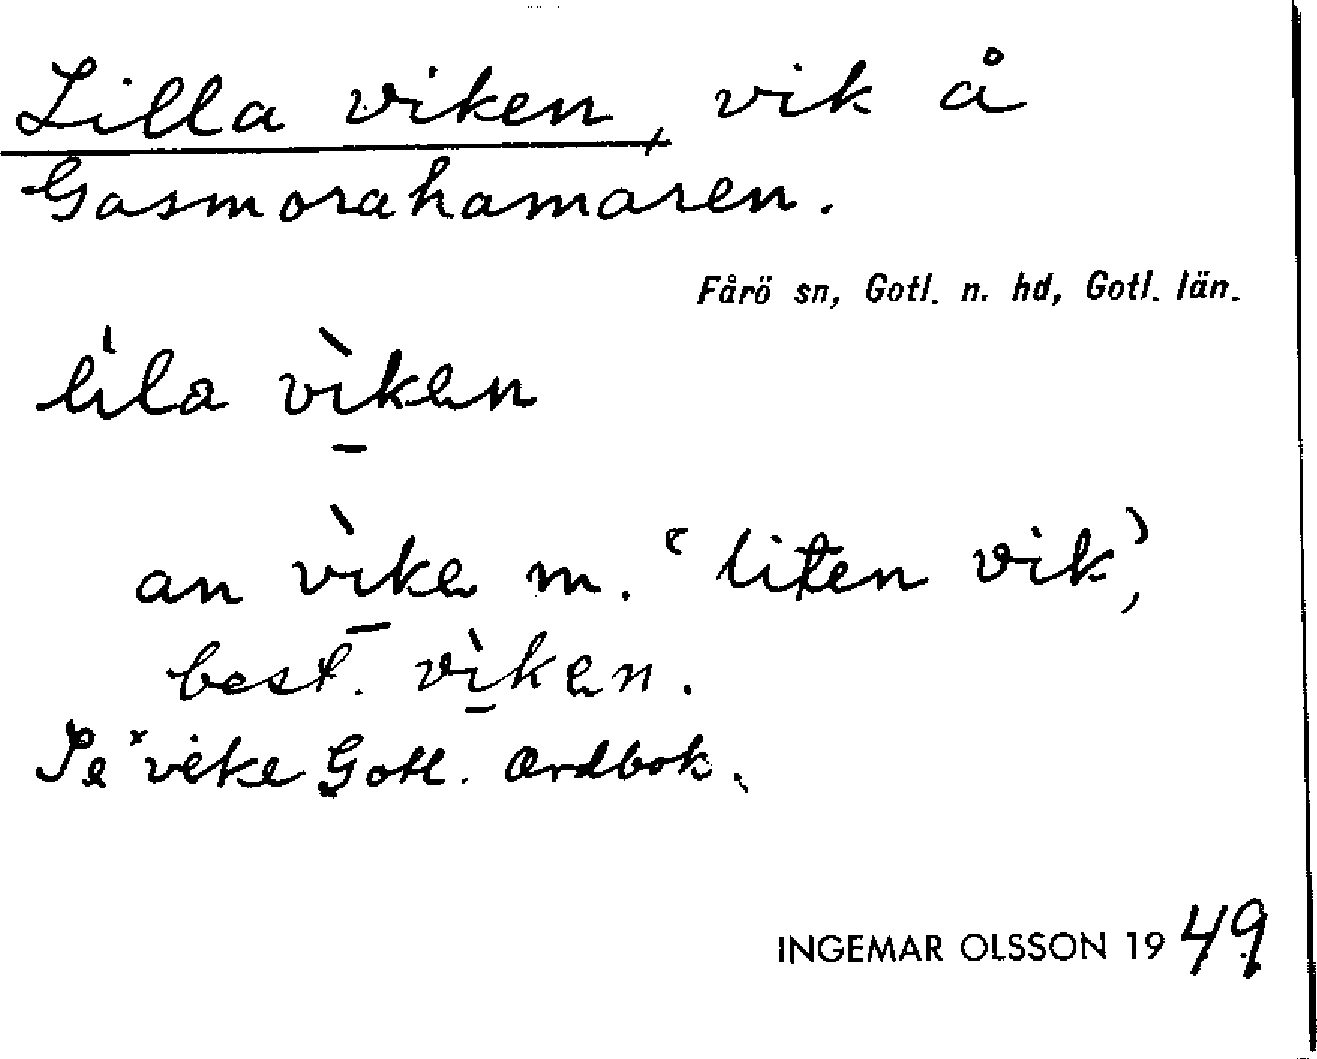 Lilla viken, vik å
Gasmorahamaren.
Fårö sn, Gotl. n. hd, Gotl. län.
lila vìken
an vìke m. ‘liten vik’,
best. vìken.
Se vike Gotl. Ordbok.
INGEMAR OLSSON 1949